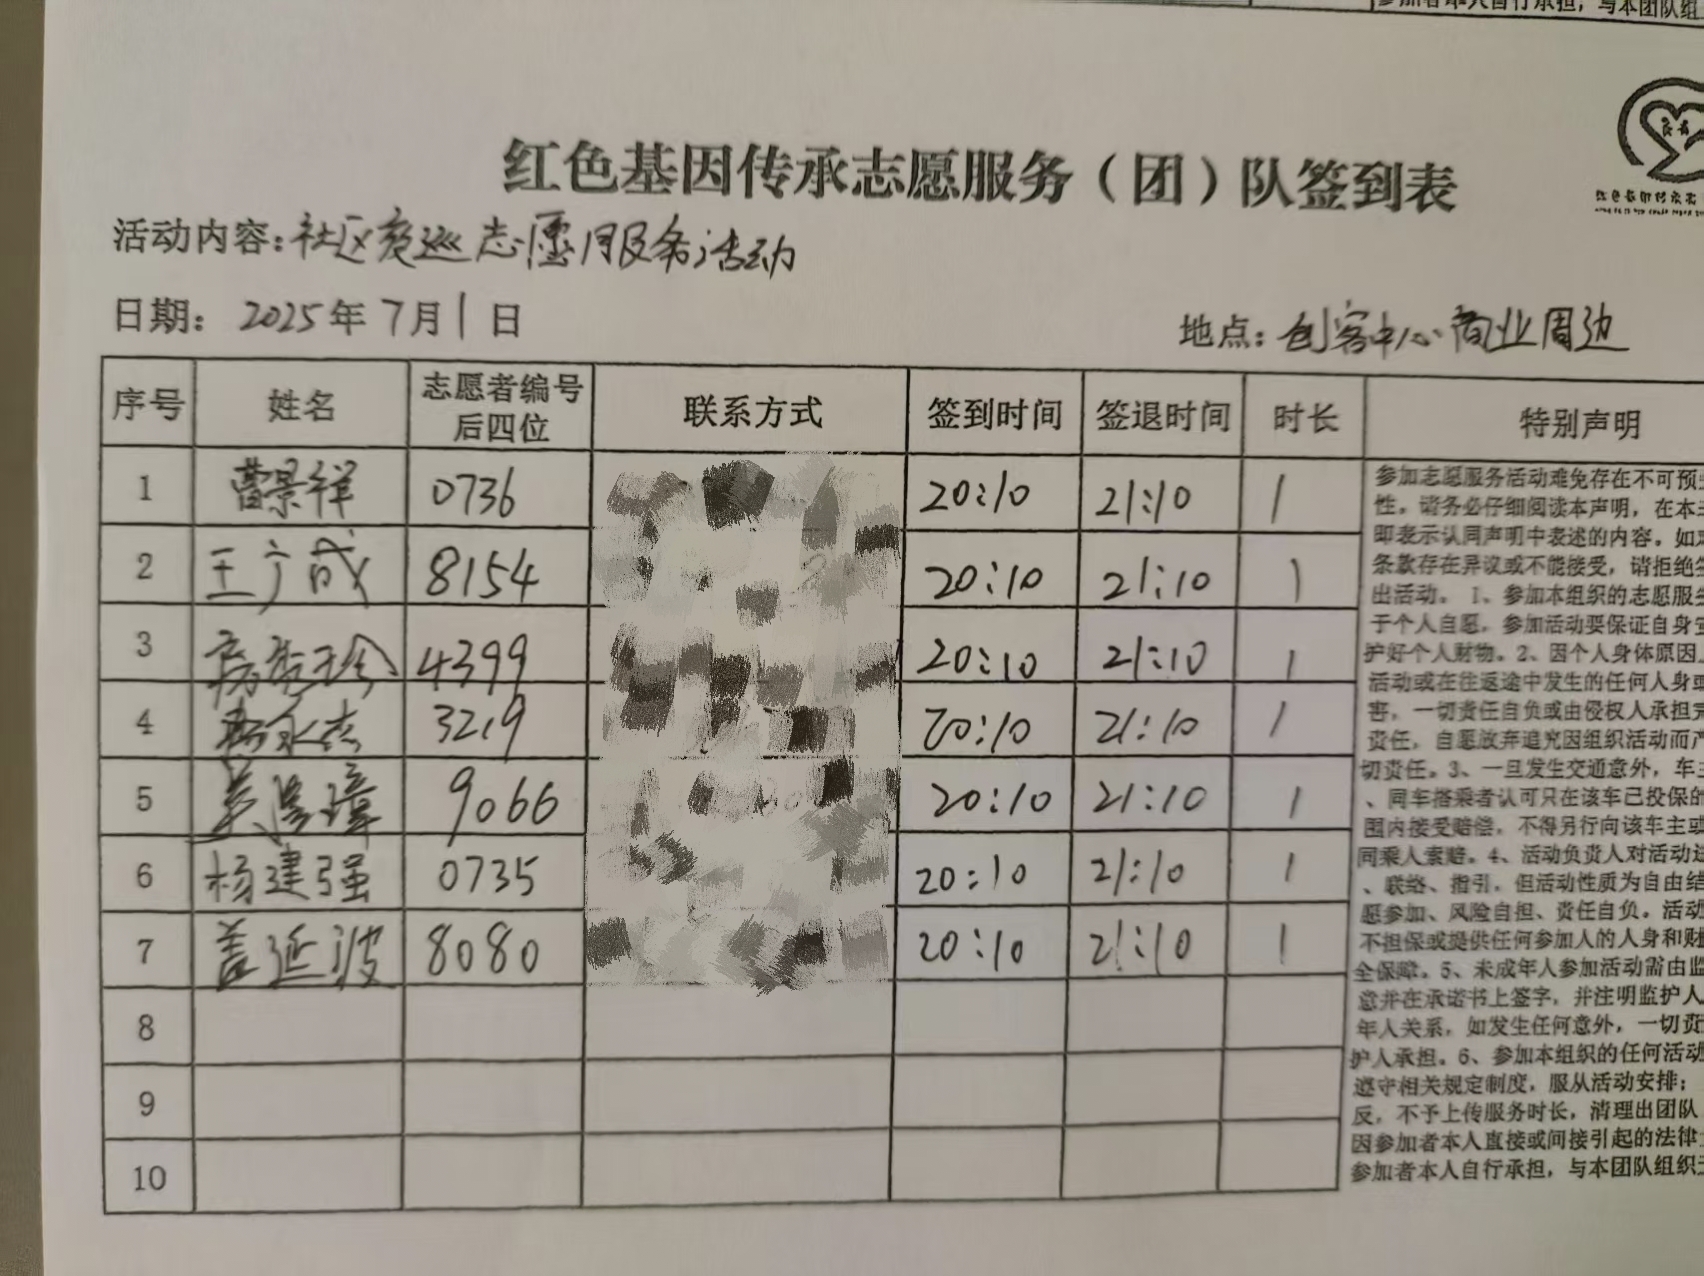 参加者本人自行承担，与本团队组
红色基因传承志愿服务（团）队签到表
活动内容：社区夜巡志愿服务活动
日期： 2025年7月1日
地点：创客中心商业周边
序号 姓名 志愿者编号后四位 联系方式 签到时间 签退时间 时长 特别声明
1 曹景祥 0736 20:10 21:10 1
2 王广成 8154 20:10 21:10 1
3 4399 20:10 21:10 1
4 3219 20:10 21:10 1
5 9066 20:10 21:10 1
6 杨建强 0735 20:10 21:10 1
7 盖延波 8080 20:10 21:10 1
8
9
10
参加志愿服务活动难免存在不可预
性，请务必仔细阅读本声明，在本
即表示认同声明中表述的内容。如
条款存在异议或不能接受，请拒绝
出活动。1、参加本组织的志愿服
于个人自愿，参加活动要保证自身
护好个人财物。2、因个人身体原因
活动或在往返途中发生的任何人身或
害，一切责任自负或由侵权人承担
责任，自愿放弃追究因组织活动而
切责任。3、一旦发生交通意外，车
、同车搭乘者认可只在该车已投保的
围内接受赔偿，不得另行向该车主或
同乘人索赔。4、活动负责人对活动
、联络、指引，但活动性质为自由结
愿参加、风险自担、责任自负。活动
不担保或提供任何参加人的人身和财
全保障。5、未成年人参加活动需由监
意并在承诺书上签字，并注明监护人
年人关系，如发生任何意外，一切责
护人承担。6、参加本组织的任何活动
遵守相关规定制度，服从活动安排；
反，不予上传服务时长，清理出团队
因参加者本人直接或间接引起的法律
参加者本人自行承担，与本团队组织